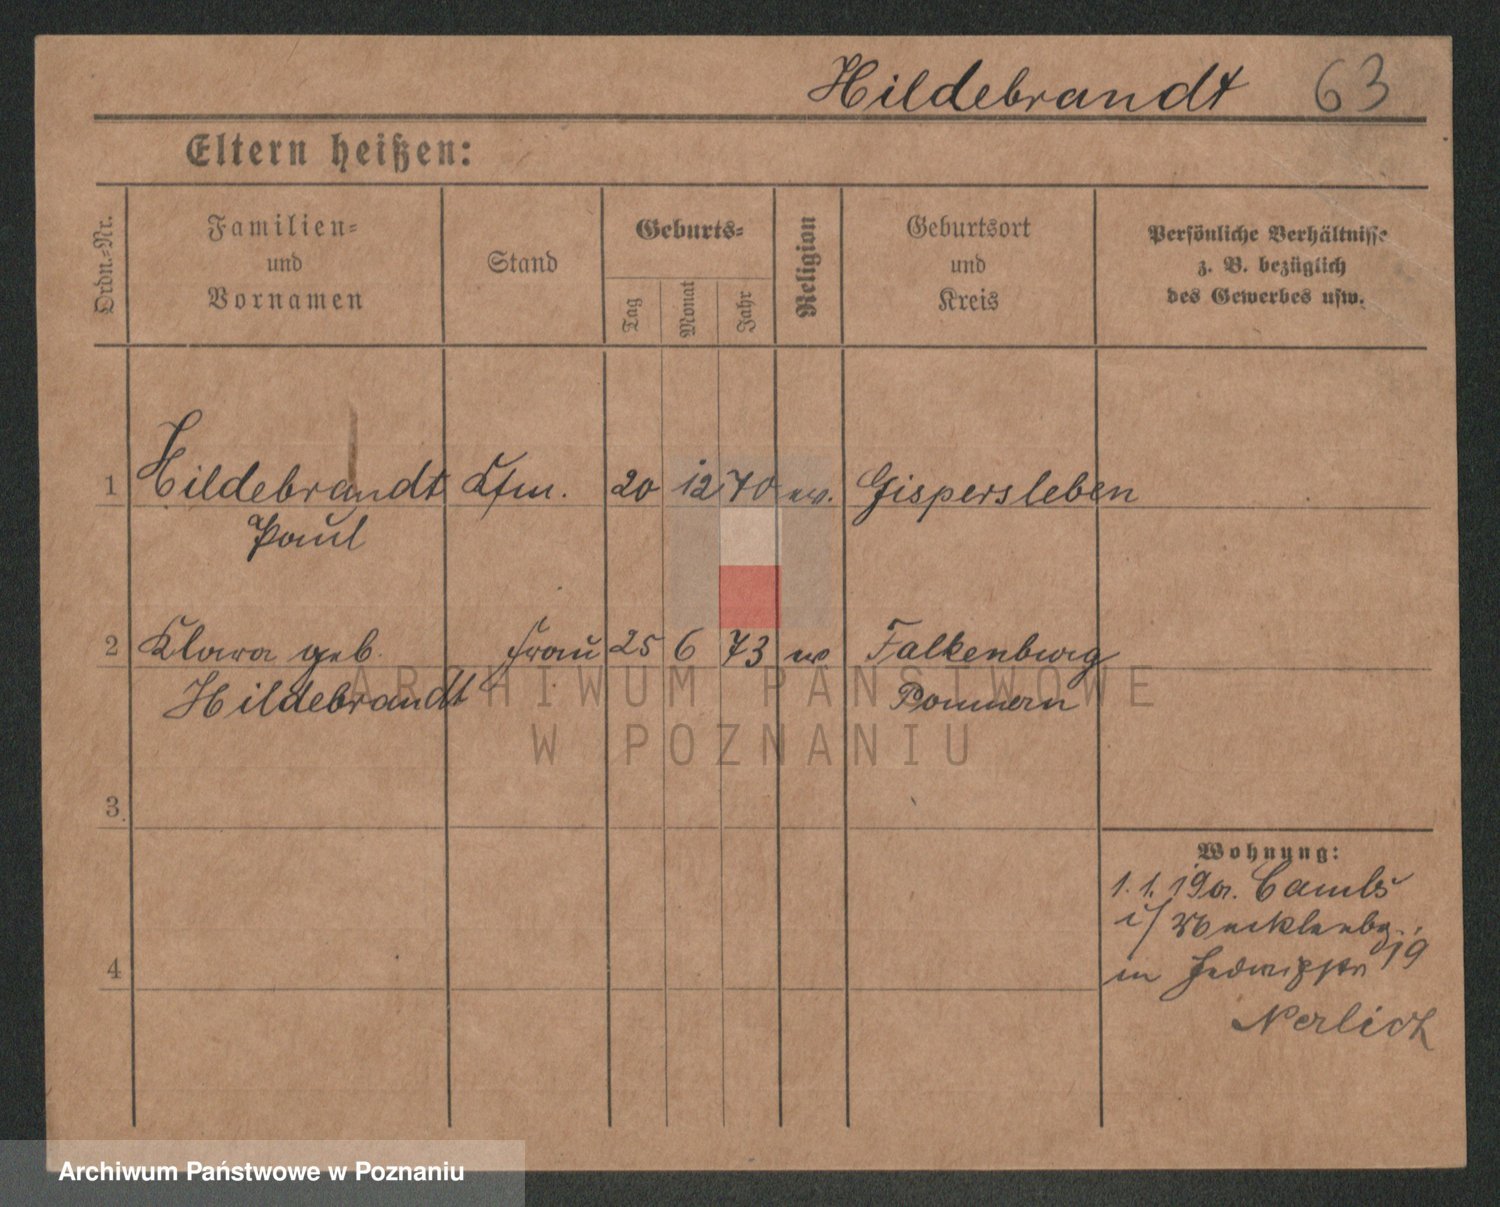 Hildebrandt 63
Eltern heißen:
Ordn.-Nr.
Familien-
und
Vornamen
Stand
Geburts-
Tag
Monat
Jahr
Religion
Geburtsort
und
Kreis
Persönliche Verhältnisse
z. B. bezüglich
des Gewerbes usw.
1 Hildebrandt Kfm. 20 12 70 ev. Gispersleben
Paul
2 Klara geb. Frau 25 6 73 ev Falkenburg
Hildebrandt Pommern
3
4
Wohnung:
1. 1. 19
i/ Mecklenbg.
in Hedwigstr 19
Nerlich
ARCHIWUM PAŃSTWOWE
W POZNANIU
Archiwum Państwowe w Poznaniu